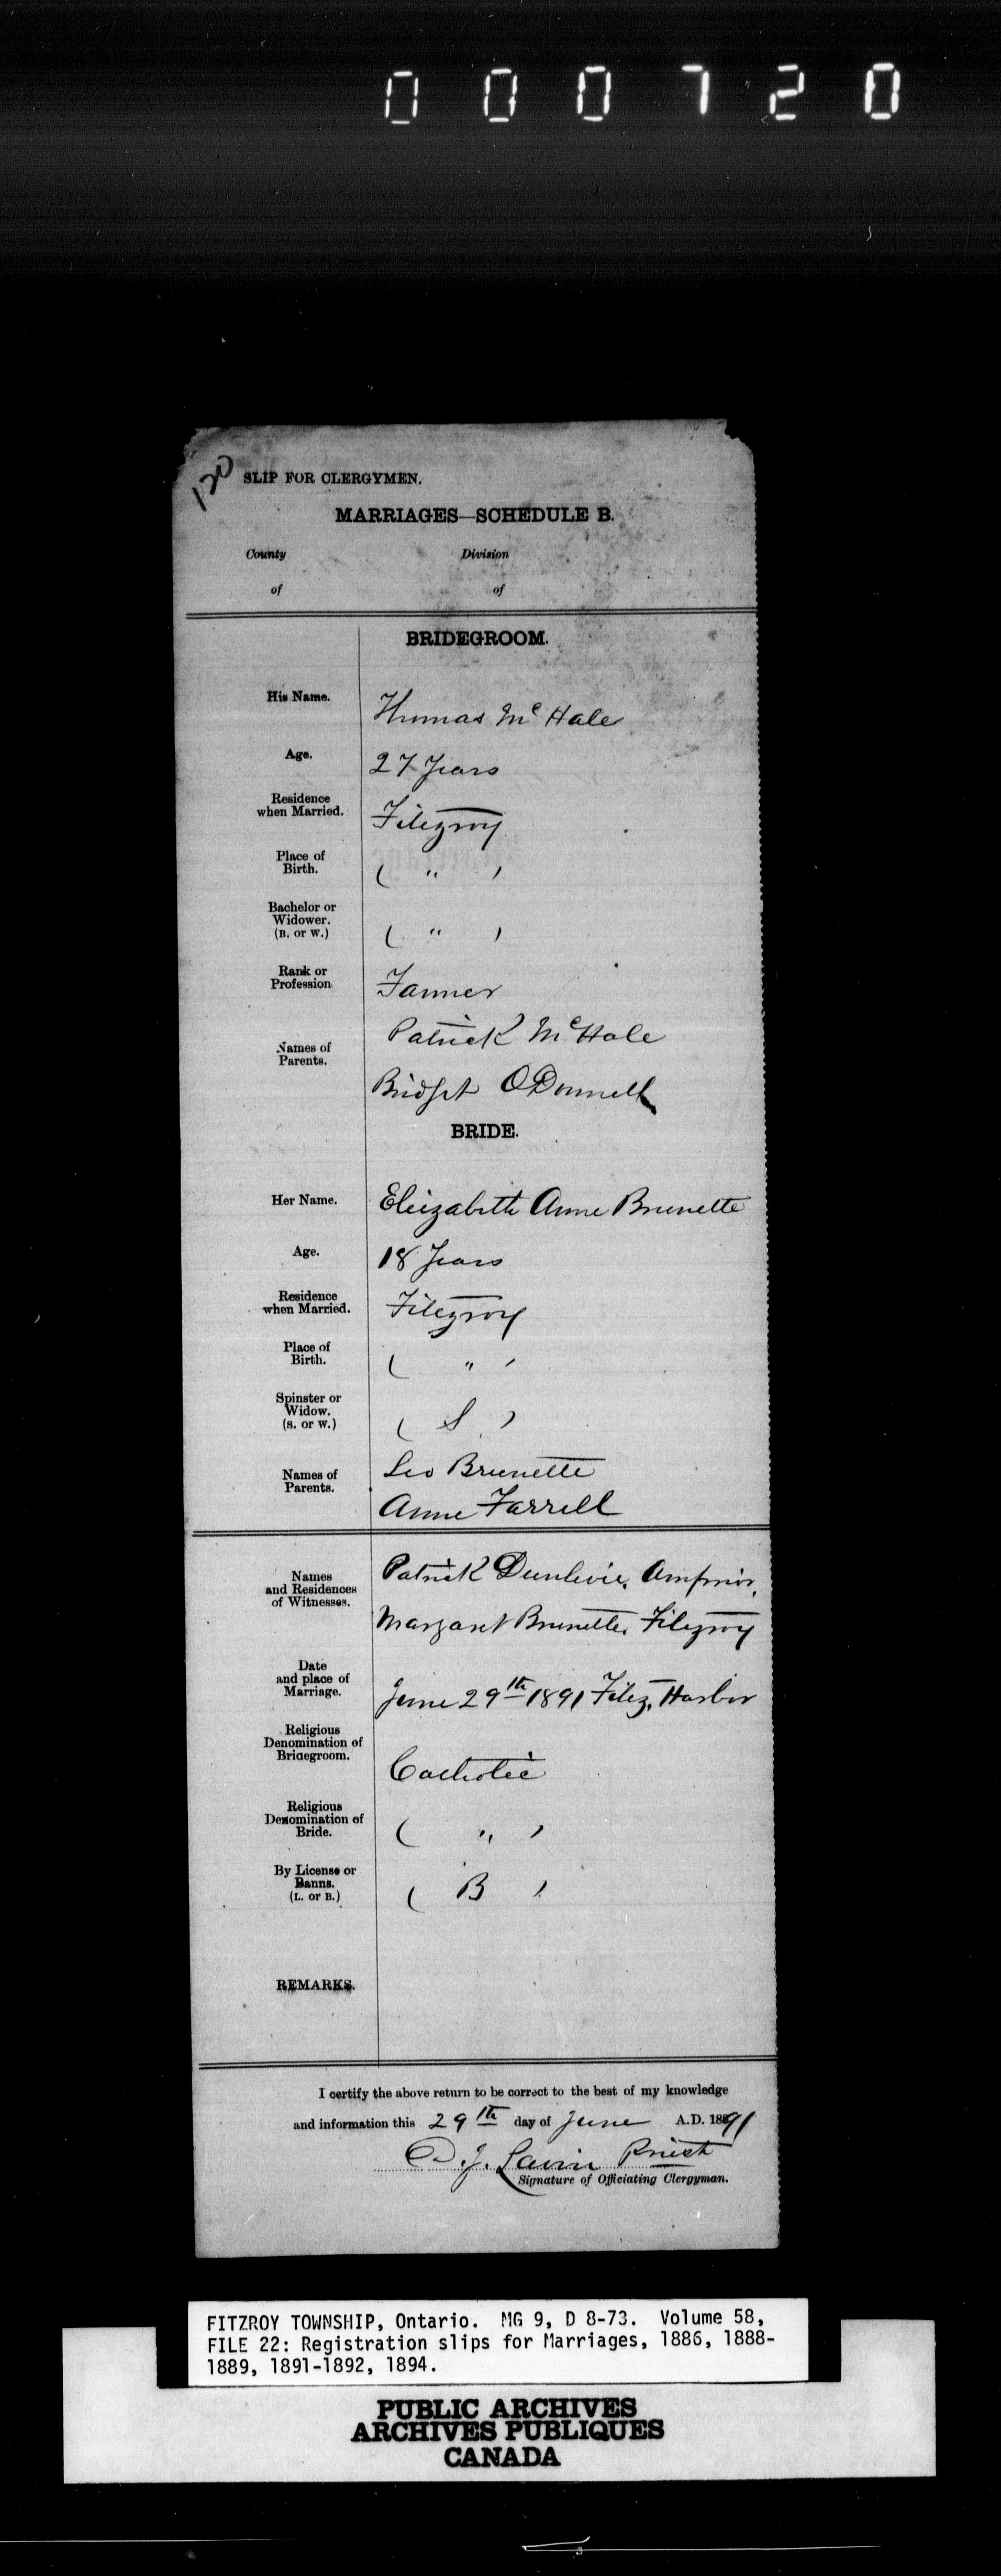 000720
120
SLIP FOR CLERGYMEN.
MARRIAGES—SCHEDULE B.
County Division
of of
BRIDEGROOM.
His Name. Thomas Mc Hale
Age. 27 Years
Residence
when Married. Fitzroy
Place of
Birth. ( " )
Bachelor or
Widower.
(B. or W.) ( " )
Rank or
Profession Farmer
Names of
Parents. Patrick McHale
Bridget O'Donnell
BRIDE.
Her Name. Elizabeth Anne Brunette
Age. 18 Years
Residence
when Married. Fitzroy
Place of
Birth. ( " )
Spinster or
Widow.
(S. or W.) ( S. )
Names of
Parents. Leo Brunette
Anne Farrell
Names
and Residences
of Witnesses. Patrick Dunlevie, Arnprior,
Margaret Brunette, Fitzroy
Date
and place of
Marriage. June 29th 1891 Fitz. Harbor
Religious
Denomination of
Bridegroom. Catholic
Religious
Denomination of
Bride. ( " )
By License or
Banns.
(L. or B.) ( B )
REMARKS.
I certify the above return to be correct to the best of my knowledge
and information this 29th day of June A.D. 1891
D. J. Lavin Priest
Signature of Officiating Clergyman.
FITZROY TOWNSHIP, Ontario. MG 9, D 8-73. Volume 58,
FILE 22: Registration slips for Marriages, 1886, 1888-
1889, 1891-1892, 1894.
PUBLIC ARCHIVES
ARCHIVES PUBLIQUES
CANADA